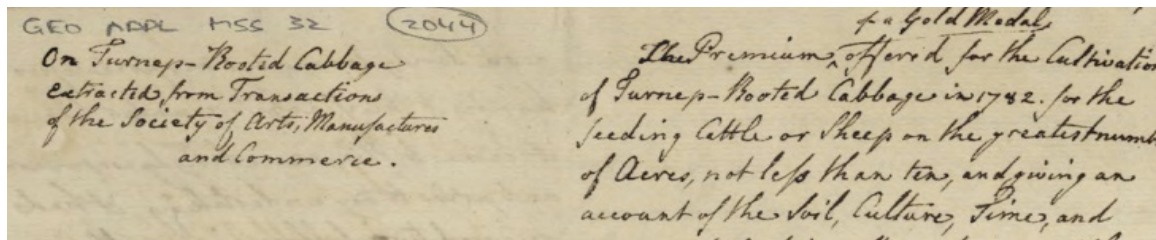 GEO ADDL MSS 32 2044
On Turnep-Rooted Cabbage
extracted from Transactions
of the Society of Arts, Manufactures
and Commerce.
of a Gold Medal
The Premium ‸ offered for the Cultivation
of Turnep-Rooted Cabbage in 1782. for the
feeding Cattle or Sheep on the greatest numb
of Acres, not less than ten, and giving an
account of the Soil, Culture, Time, and